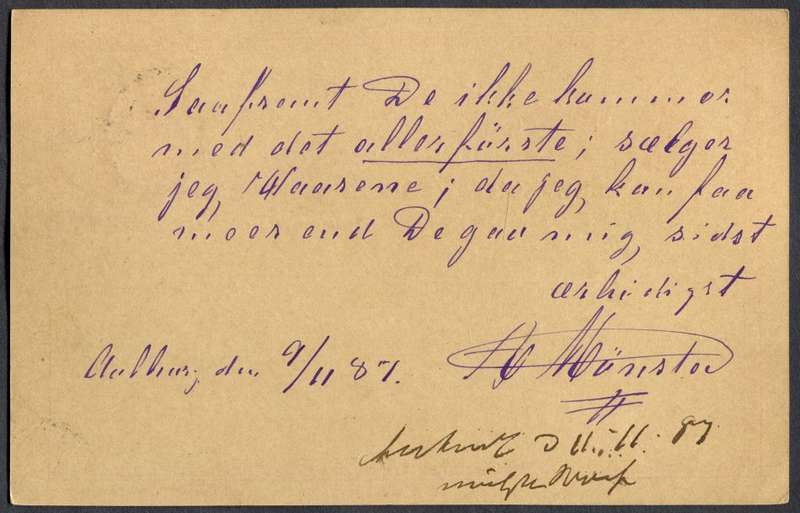 Saafremt De ikke kommer
med det allerførste; sælger
jeg Waarene; da jeg kan faa
meer end De gav mig sidst
ærbødigst
Aalborg den 9/11 87.
H Münster
D 11.11.87